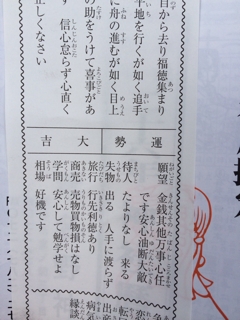 自から去り福徳集まり
平地を行くが如く追手
に舟の進むが如く目上
の助をうけて喜事があ
す　信心怠らず心直く
正しくなさい
運勢　大吉
願望　金銭其他万事心任
です安心油断大敵
待人　たよりなし　来る
失物　出る　人手に渡らず
旅行　行先利徳あり
商売　売物買物損はなし
学問　安心して勉学せよ
相場　好機です